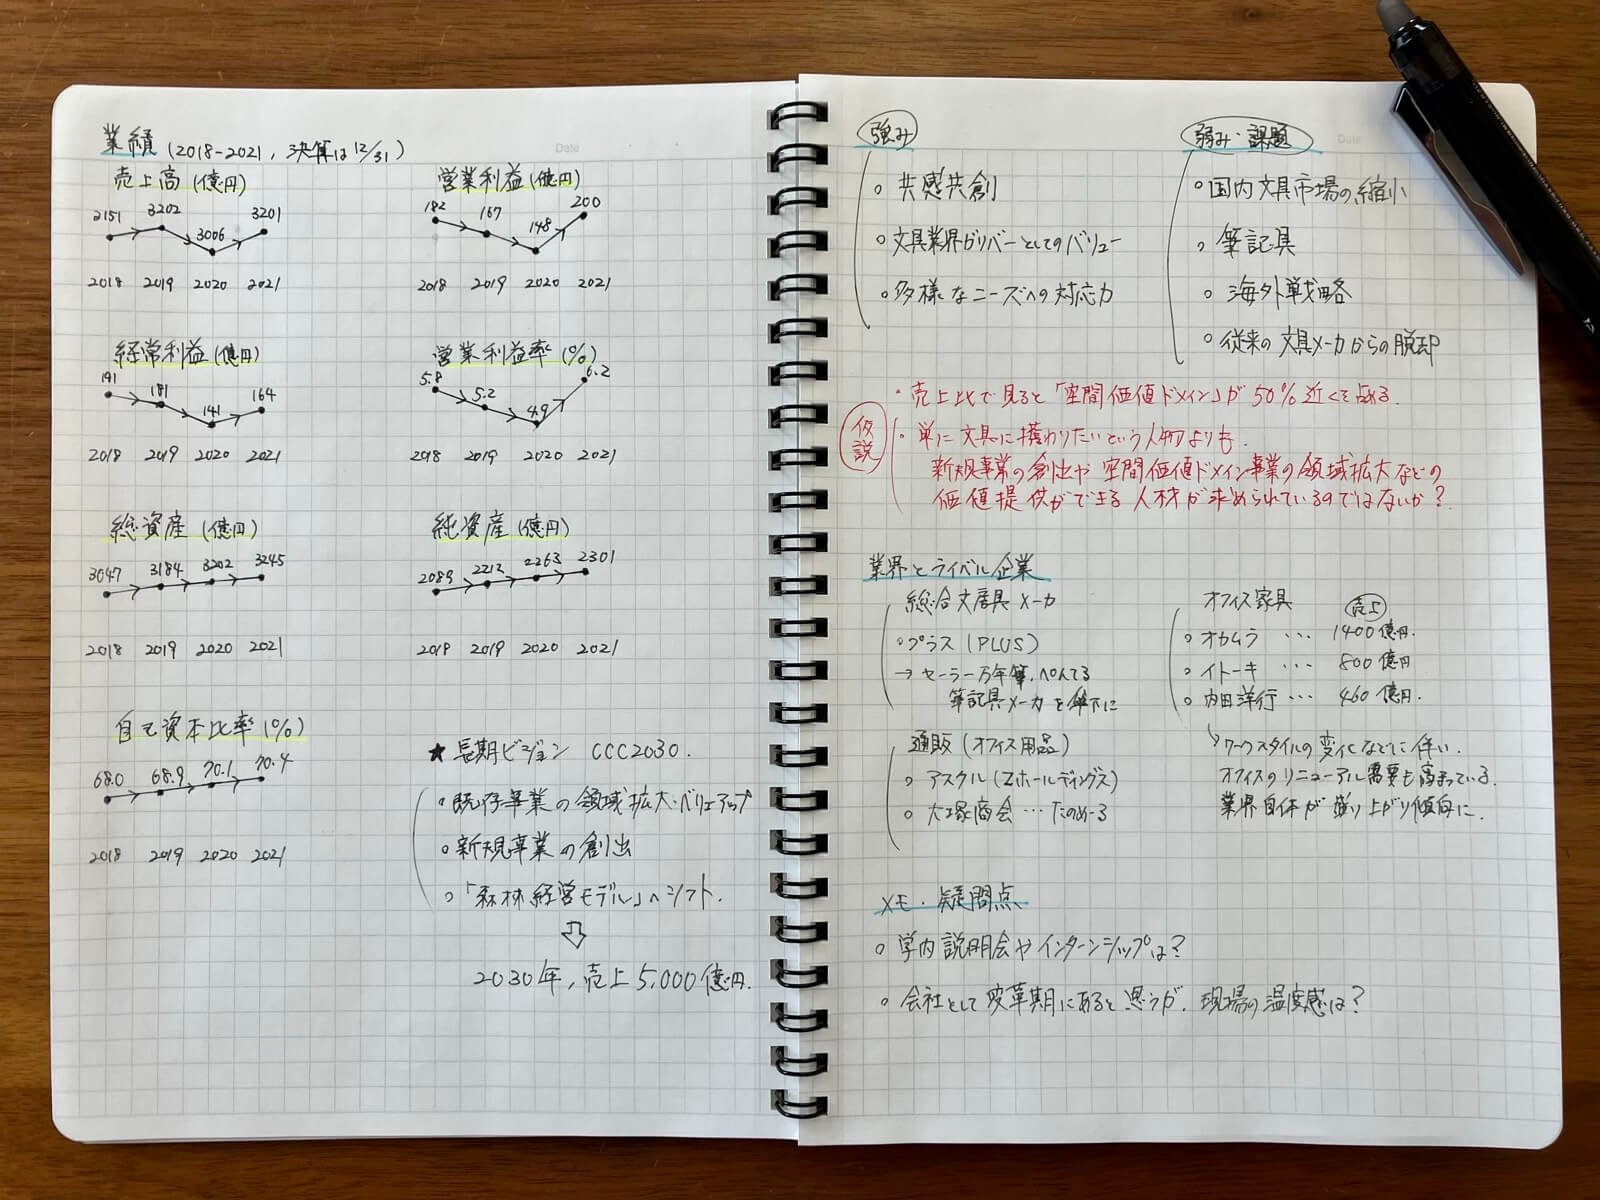 業績(2018-2021, 決算は12/31)
売上高(億円)
2151 3202 3006 3201
2018 2019 2020 2021
営業利益(億円)
182 167 148 200
2018 2019 2020 2021
経常利益(億円)
191 181 141 164
2018 2019 2020 2021
営業利益率(%)
5.8 5.2 4.9 6.2
2018 2019 2020 2021
総資産(億円)
3047 3184 3202 3245
2018 2019 2020 2021
純資産(億円)
2089 2212 2263 2301
2018 2019 2020 2021
自己資本比率(%)
68.0 68.9 70.1 70.4
2018 2019 2020 2021
★長期ビジョン CCC2030.
・既存事業の領域拡大・バリューアップ
○新規事業の創出
○「森林経営モデル」へシフト.
⇩
2030年,売上5,000億円.
Date
強み
○共感共創
○文具業界ガリバーとしてのバリュー
○多様なニーズへの対応力
Date
弱み・課題
○国内文具市場の縮小
○筆記具
○海外戦略
○従来の文具メーカからの脱却
仮説
・売上比で見ると「空間価値ドメイン」が50%近くを占める.
・単に文具に携わりたいという人物よりも.
新規事業の創出や空間価値ドメイン事業の領域拡大などの
価値提供ができる人材が求められているのではないか?
業界とライバル企業
総合文房具メーカ
・プラス(PLUS)
→セーラー万年筆.ぺんてる
筆記具メーカを傘下に
通販(オフィス用品)
○アスクル(Zホールディングス)
○大塚商会…たのめーる
オフィス家具 売上
○オカムラ … 1400億円.
○イトーキ … 800億円
○内田洋行 … 460億円.
↳ワークスタイルの変化などに伴い.
オフィスのリニューアル需要も高まっている.
業界自体が盛り上がり傾向に.
メモ・疑問点
○学内説明会やインターンシップは?
○会社として変革期にあると思うが.現場の温度感は?